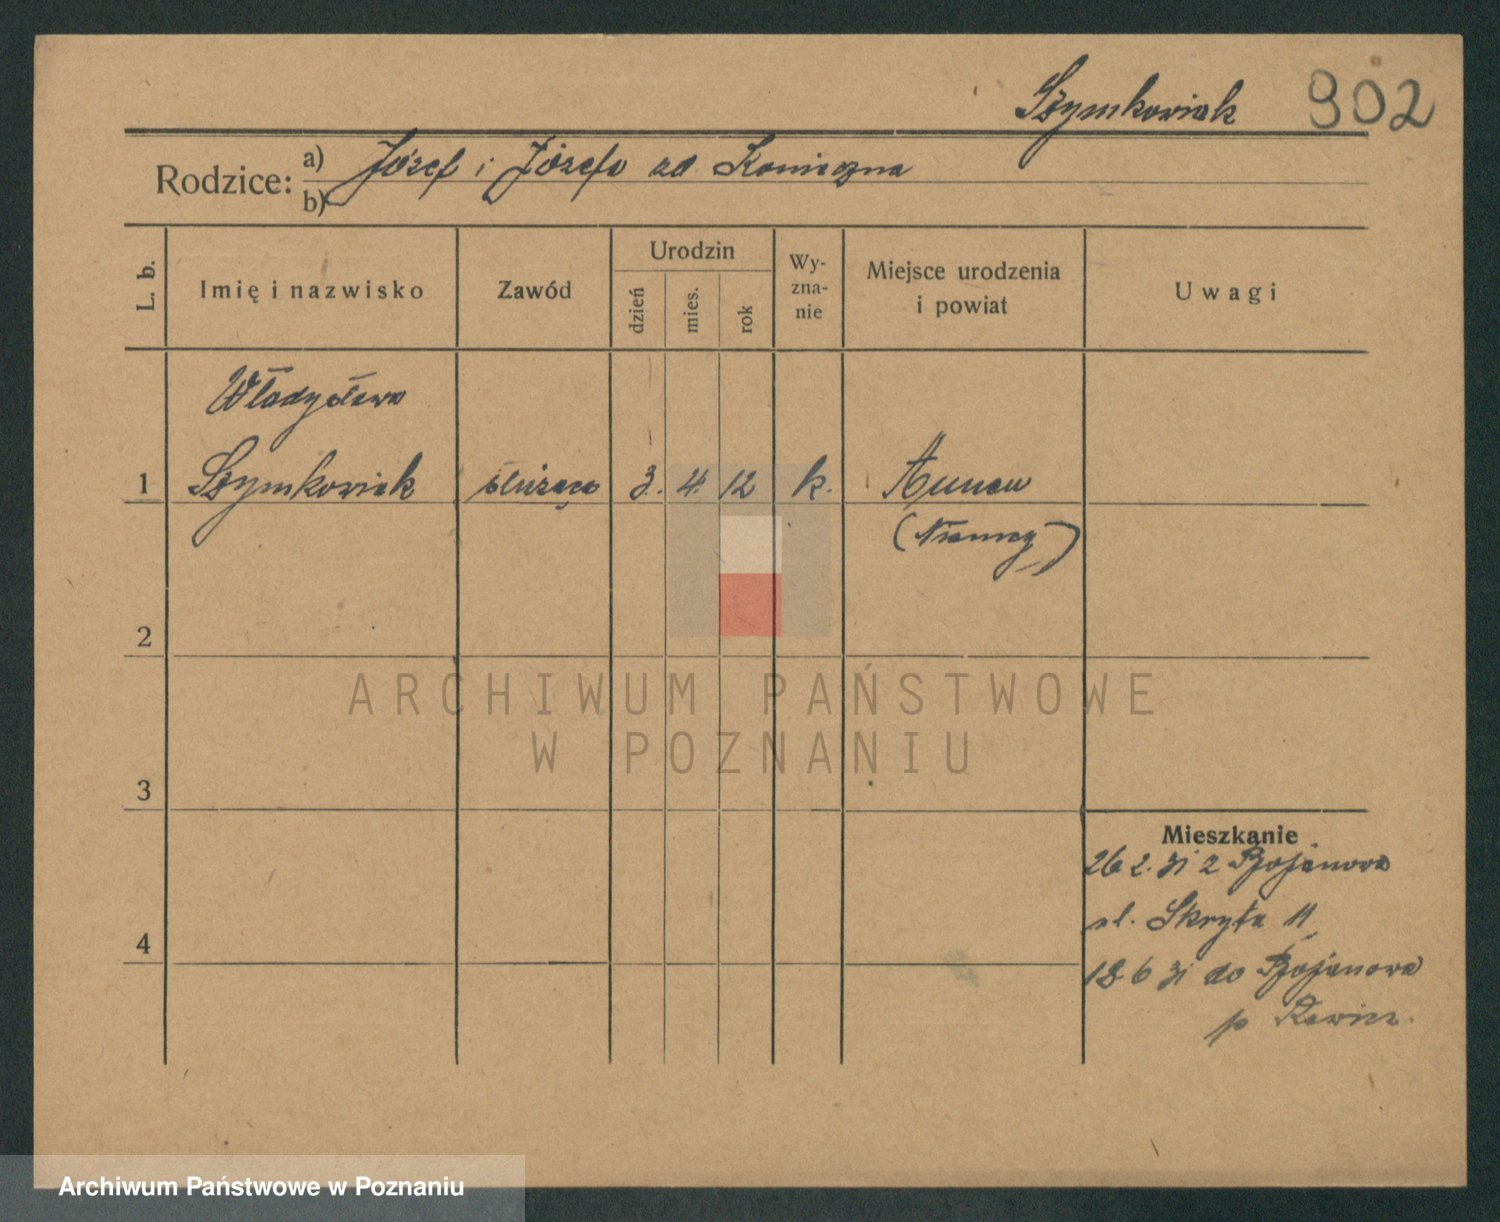 Szymkowiak 902
Rodzice: a) Józef i Józefa zd. Konieczna
b)
L. b.
Imię i nazwisko
Zawód
Urodzin
dzień
mies.
rok
Wy-
zna-
nie
Miejsce urodzenia
i powiat
Uwagi
Władysława
1 Szymkowiak służąca 3. 4. 12 k.
(Niemcy)
2
3
4
Mieszkanie
26 2. 31 z Bojanowa
ul. Skryta 11
18 6 31 do Bojanowa
p Rawicz.
ARCHIWUM PAŃSTWOWE
W POZNANIU
Archiwum Państwowe w Poznaniu